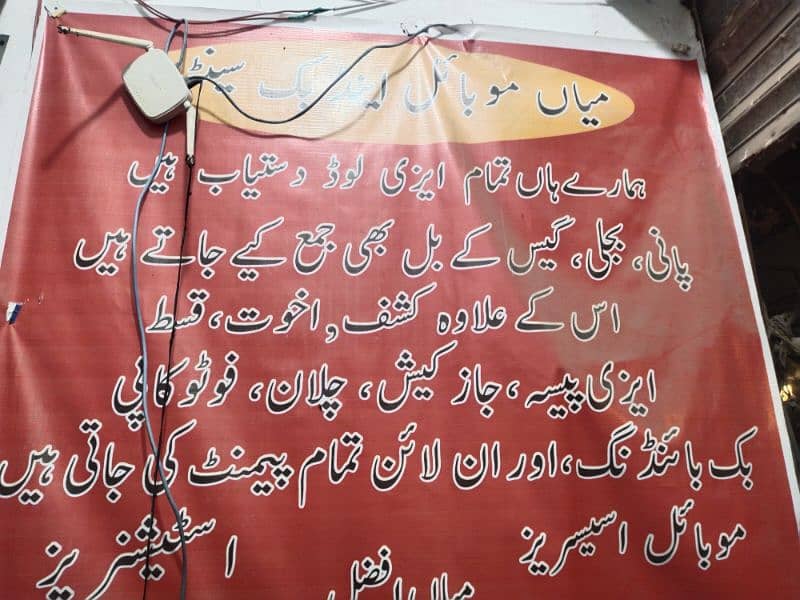 میاں موبائل اینڈ بک سینٹر
ہمارے ہاں تمام ایزی لوڈ دستیاب ہیں
پانی، بجلی، گیس کے بل بھی جمع کیے جاتے ہیں
اس کے علاوہ کشف, اخوت، قسط
ایزی پیسہ، جاز کیش، چلان، فوٹو کاپی
بک بائنڈنگ، اور ان لائن تمام پیمنٹ کی جاتی ہیں
موبائل اسیسریز اسٹیشنریز
میاں افضل